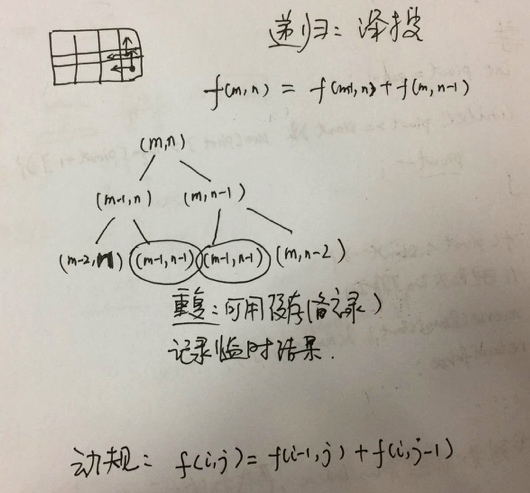 递归：深搜
f(m,n) = f(m-1,n) + f(m,n-1)
(m,n)
(m-1,n) (m,n-1)
(m-2,n) (m-1,n-1) (m-1,n-1) (m,n-2)
重复：可用缓存(备忘录)
记录临时结果.
动规： f(i,j) = f(i-1,j) + f(i,j-1)